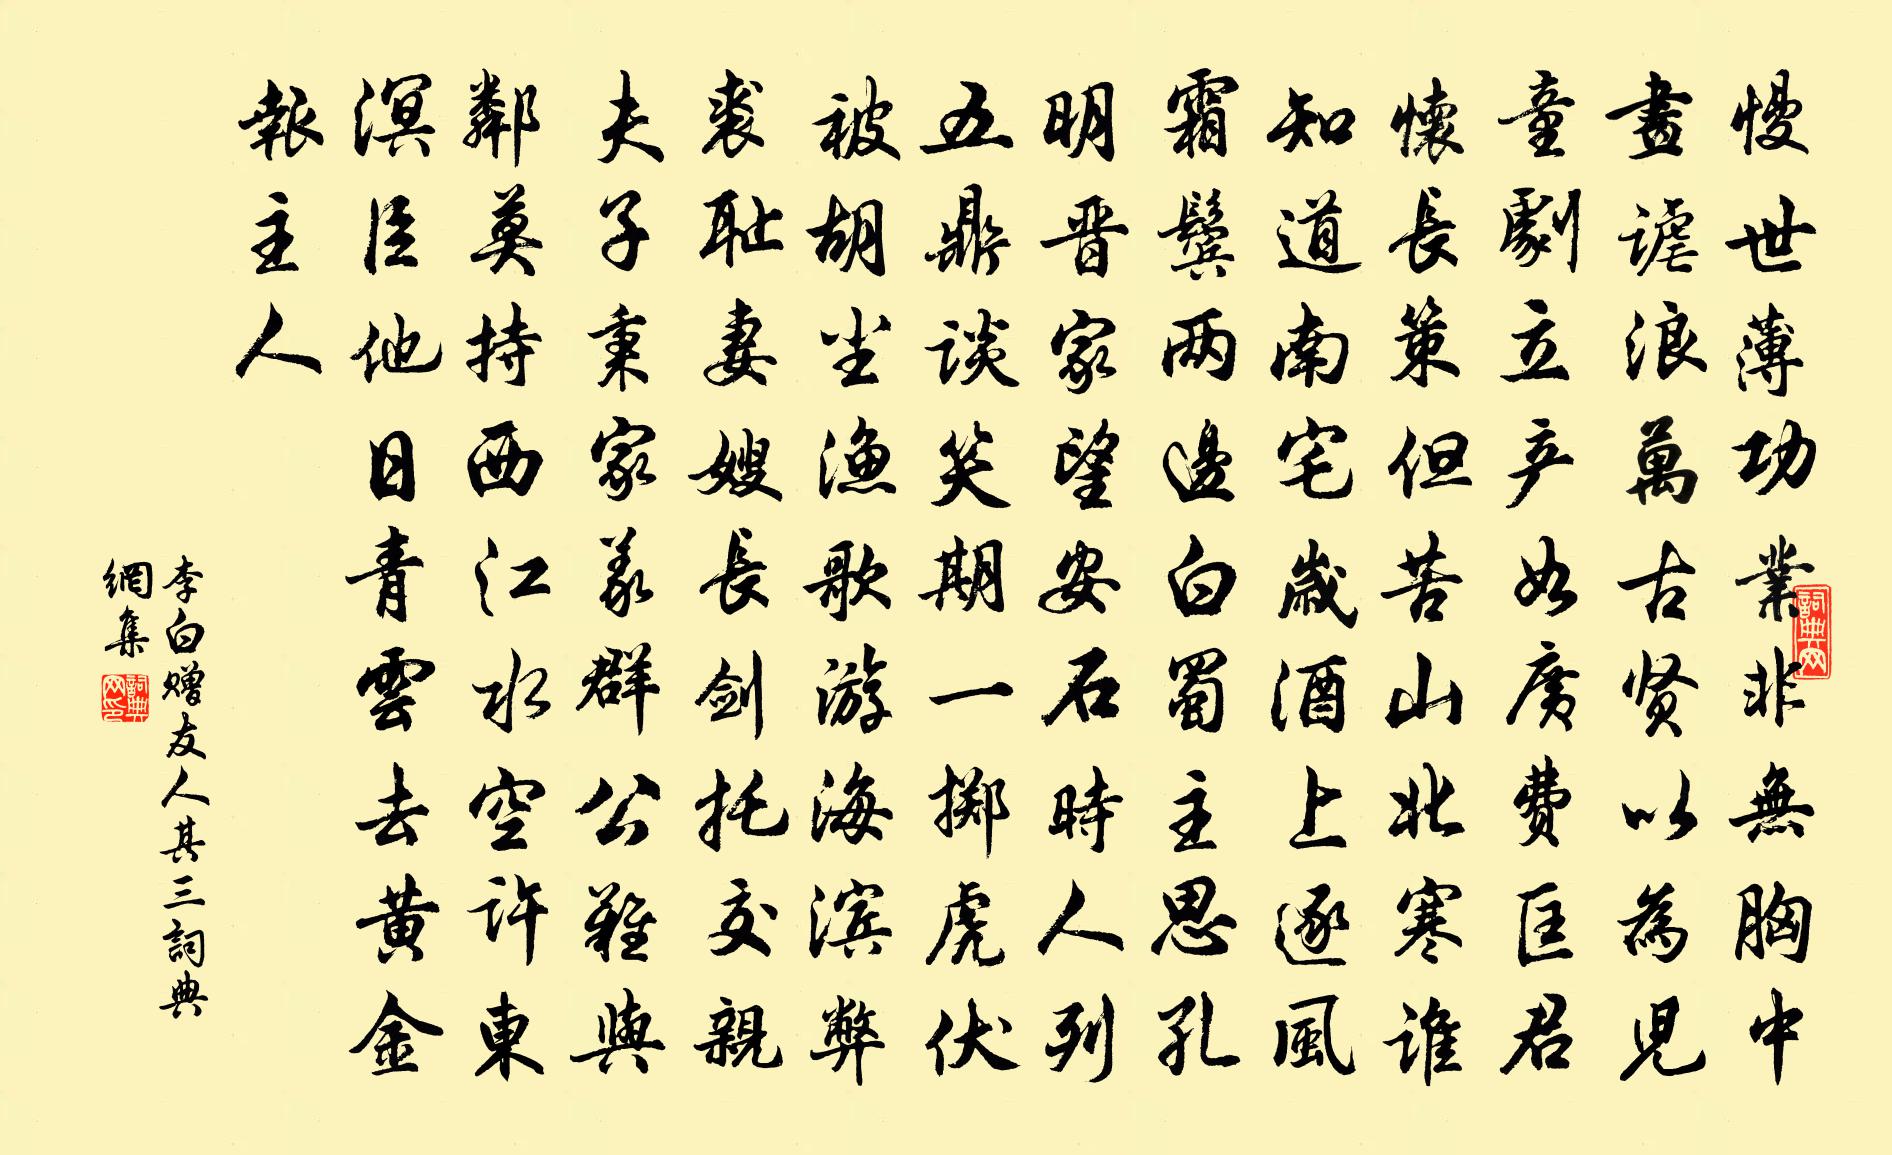 慢世薄功業非無胸中
畫謔浪萬古贤以為兒
童劇立产如廣費匡君
懷長策但苦山北寒誰
知道南宅歲酒上逐風
霜鬓两邊白蜀主思孔
明晋家望安石時人列
五鼎谈笑期一掷虎伏
被胡尘渔歌游海滨弊
裘耻妻嫂長剑托交親
夫子秉家義群公難與
鄰莫持西江水空許東
溟臣他日青雲去黄金
報主人
李白赠友人其三詞典
網集
詞典网
詞典网印